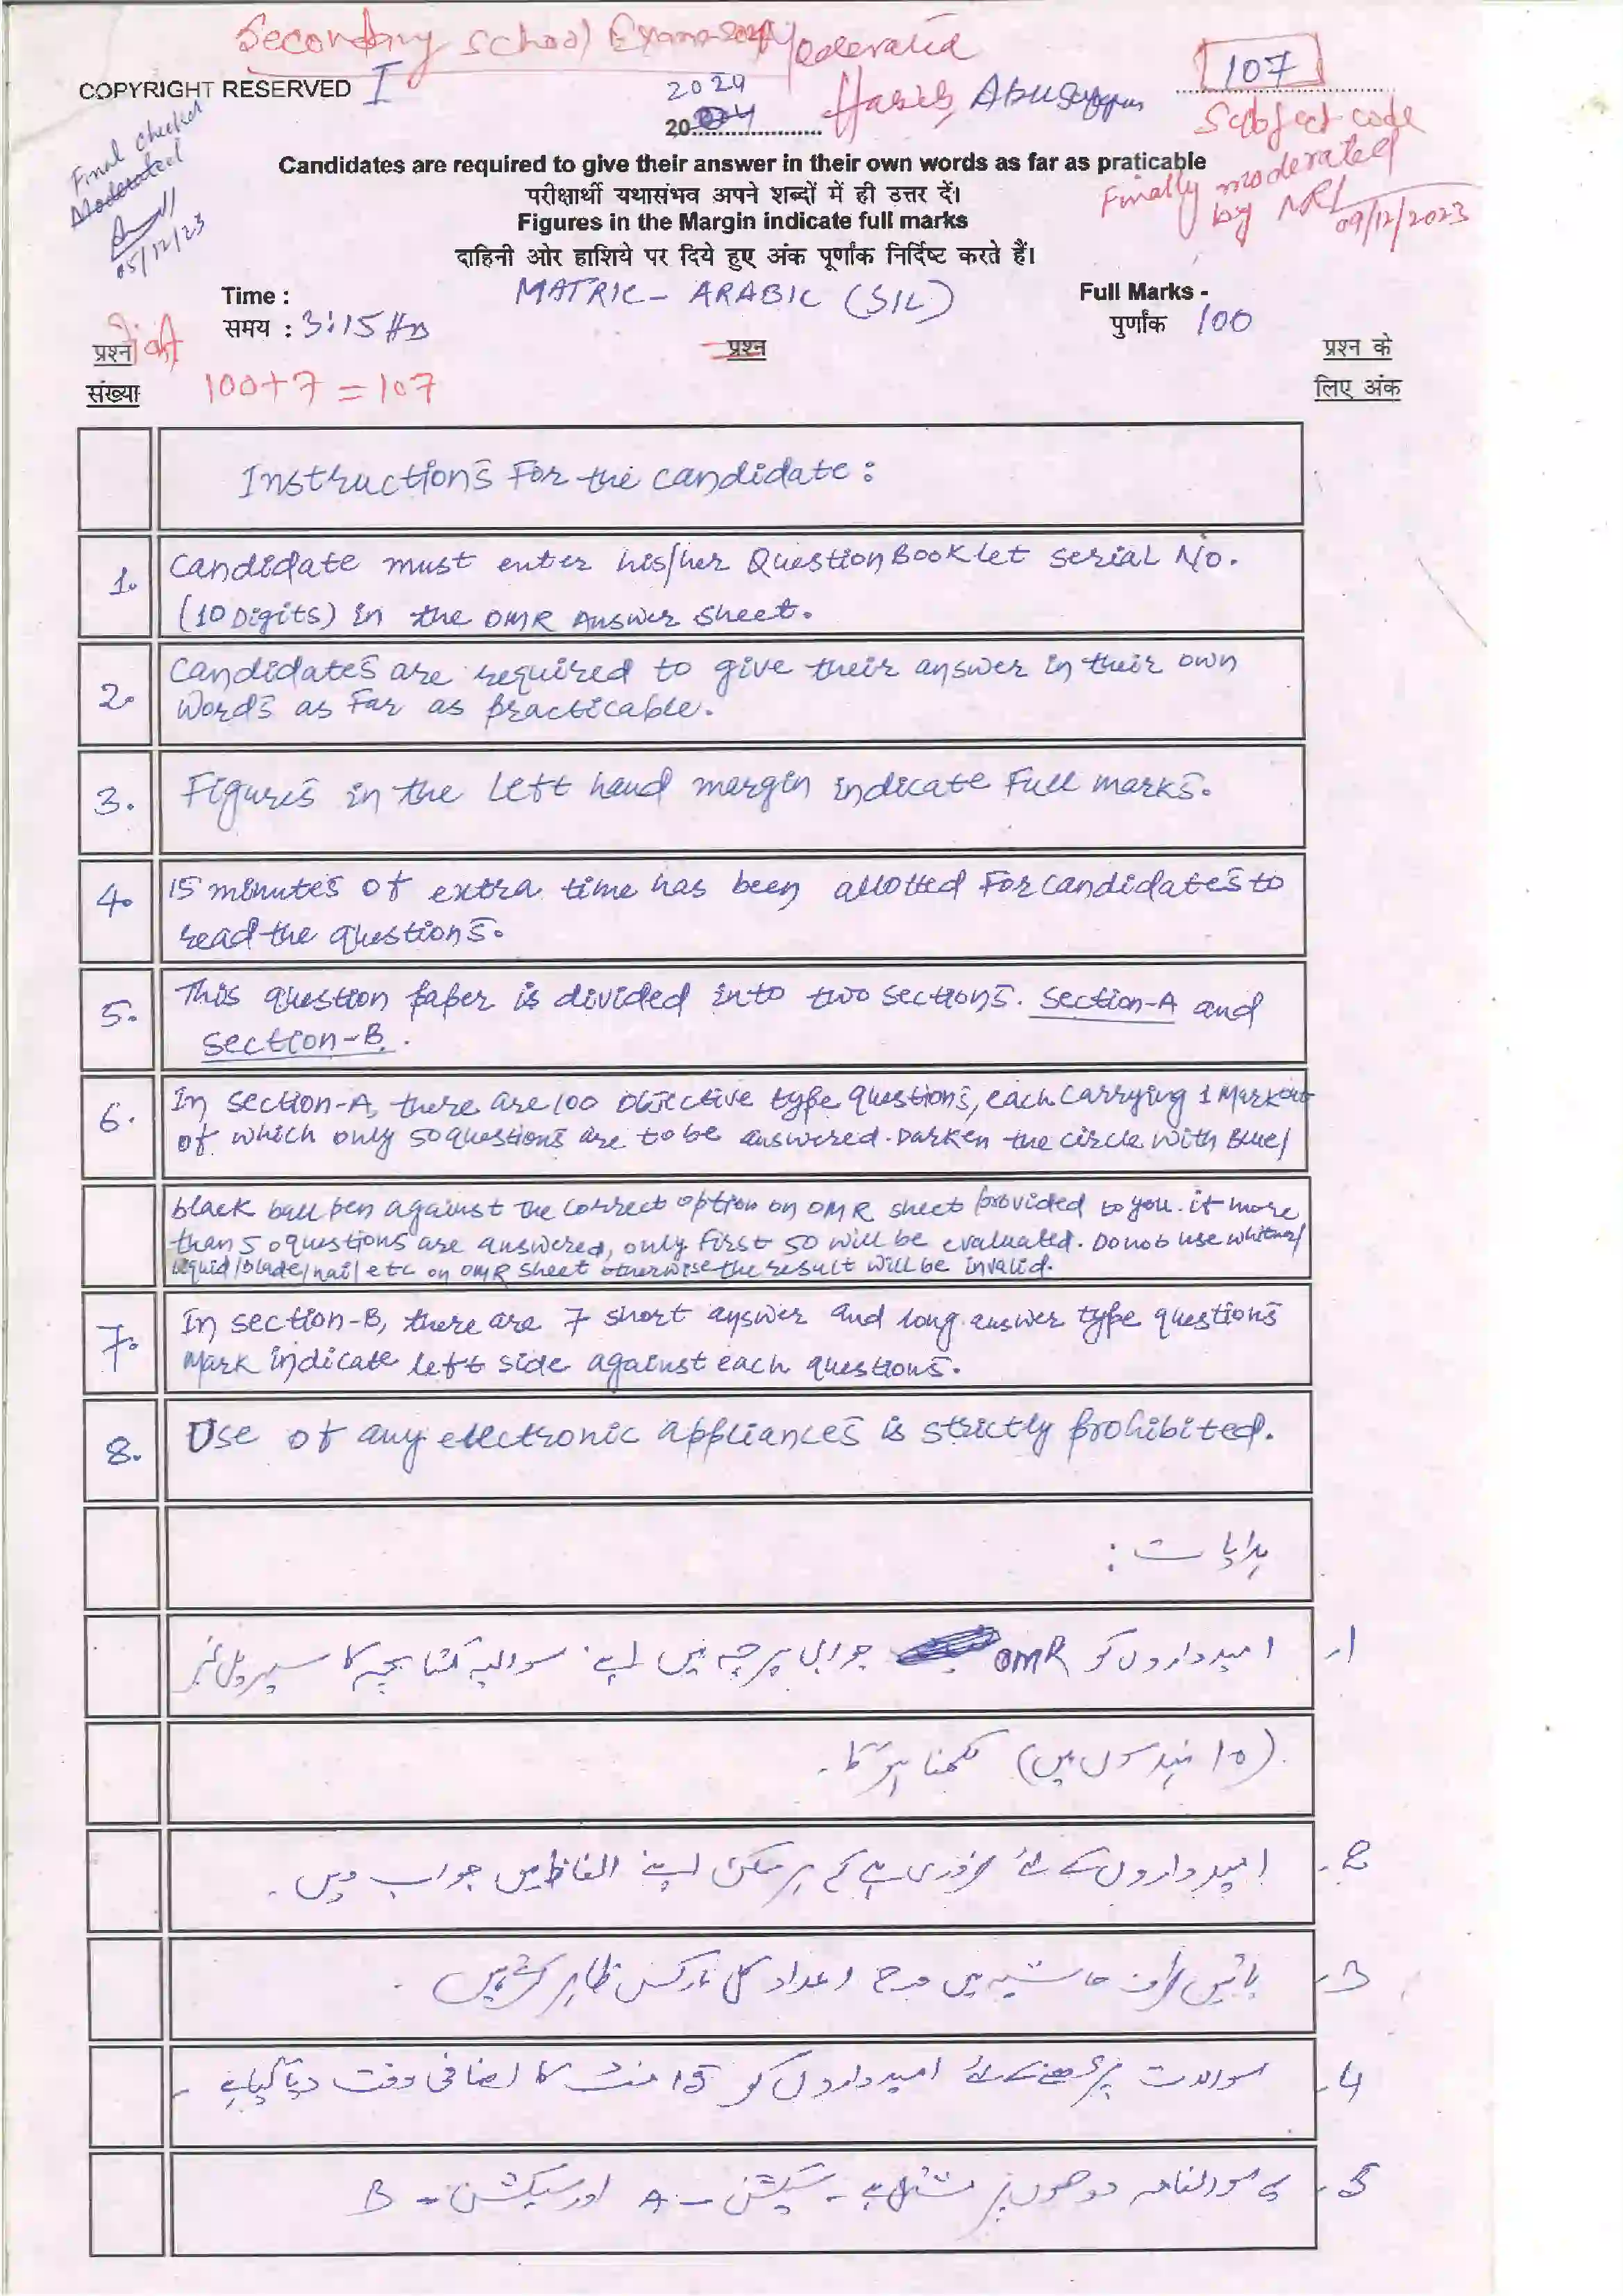 Secondary School Exam-2024 Moderated
COPYRIGHT RESERVED I
2024
107
20
Habib Abu
Subject code
Final Checked
Moderated
05/12/23
Candidates are required to give their answer in their own words as far as praticable
परीक्षार्थी यथासंभव अपने शब्दों में ही उत्तर दें।
Figures in the Margin indicate full marks
दाहिनी ओर हाशिये पर दिये हुए अंक पूर्णांक निर्दिष्ट करते हैं।
Finally moderated
by NRL
09/12/2023
Time :
समय : 3:15 Hrs
MATRIC - ARABIC (SIL)
Full Marks -
पुर्णांक 100
प्रश्न
संख्या
100+7 = 107
प्रश्न
प्रश्न के
लिए अंक
Instructions For the candidate :
1. Candidate must enter his/her Question Booklet serial No.
(10 Digits) in the OMR Answer sheet.
2. Candidates are required to give their answer in their own
words as far as practicable.
3. Figures in the Left hand margin indicate Full marks.
4. 15 minutes of extra time has been allotted For candidates to
read the questions.
5. This question paper is divided into two sections. Section-A and
Section-B.
6. In section-A, there are 100 objective type questions, each carrying 1 Mark out
of which only 50 questions are to be answered. Darken the circle with Blue/
black ball pen against the correct option on OMR sheet provided to you. if more
than 50 questions are answered, only first 50 will be evaluated. Do not use whitner/
liquid/blade/nail etc on OMR sheet otherwise the result will be invalid.
7. In section-B, there are 7 short answer and long answer type questions
Mark indicate left side against each questions.
8. Use of any electronic appliances is strictly prohibited.
ہدایات :
1- امیدواروں کو OMR جوابی پرچہ میں اپنے سوالیہ کتابچہ کا سیریل نمبر
(10 ہندسوں میں) لکھنا ہوگا۔
2- امیدواروں کے لئے ضروری ہے کہ ہر ممکن اپنے الفاظ میں جواب دیں۔
3- بائیں طرف حاشیہ میں درج اعداد کل مارکس ظاہر کرتے ہیں۔
4- سوالات پڑھنے کے لئے امیدواروں کو 15 منٹ کا اضافی وقت دیا گیا ہے۔
5- یہ سوالنامہ دو حصوں پر مشتمل ہے - سیکشن - A اور سیکشن - B